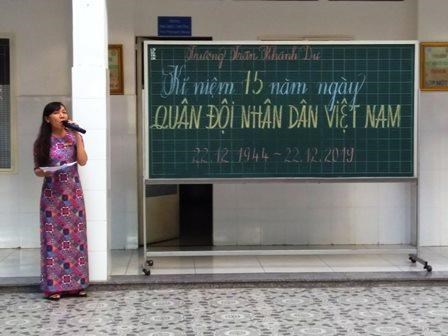 Trường Trần Khánh Dư
Kỉ niệm 15 năm ngày
QUÂN ĐỘI NHÂN DÂN VIỆT NAM
22.12.1944 ~ 22.12.2019